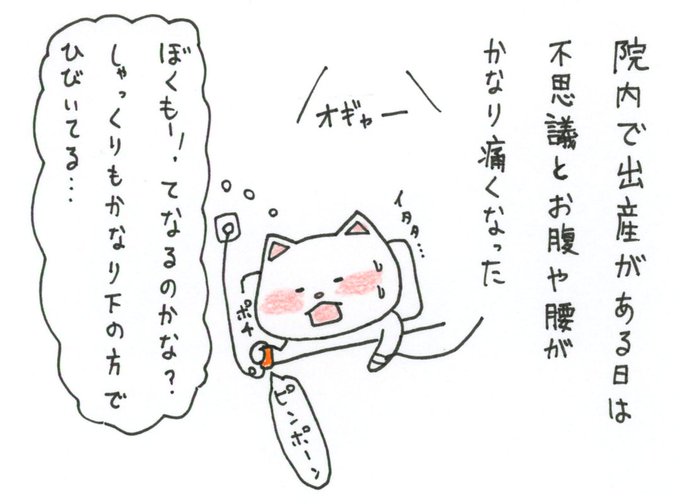 院内で出産がある日は
不思議とお腹や腰が
かなり痛くなった
オギャー
イタタ…
ポチ
ピンポーン
ぼくもー!てなるのかな?
しゃっくりもかなり下の方で
ひびいてる…